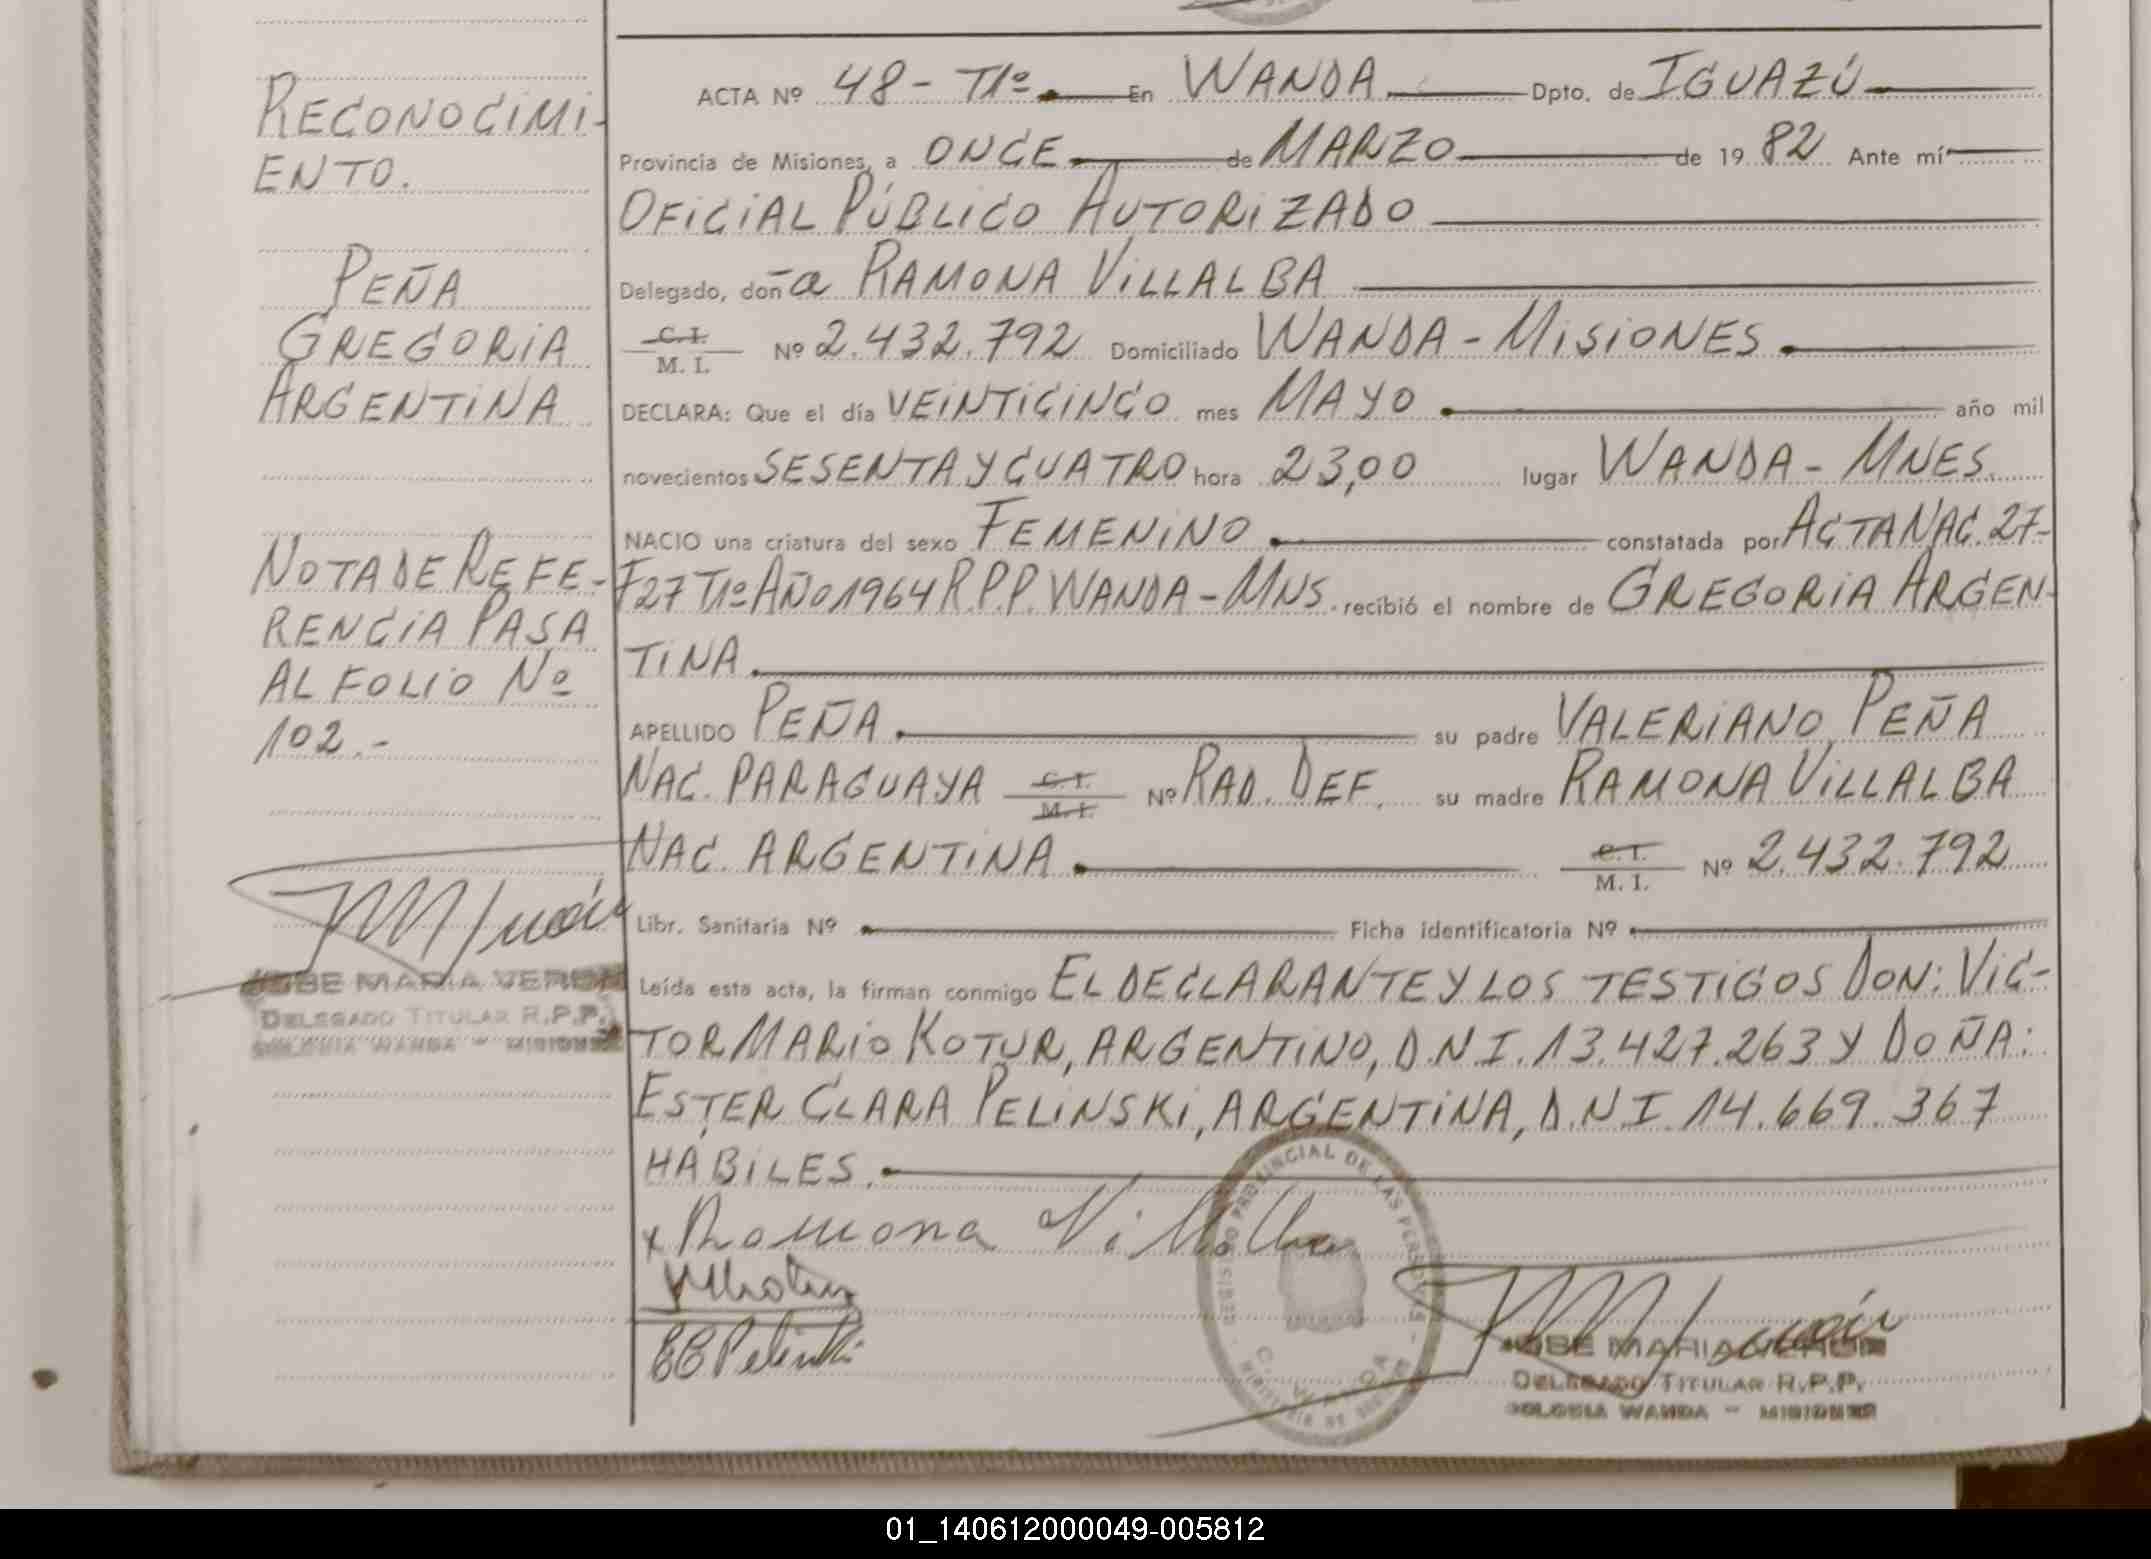 RECONOCIMI-
ENTO.
PEÑA
GREGORIA
ARGENTINA
NOTA DE REFE-
RENCIA PASA
AL FOLIO Nº
102.-
MARIA VERON
DELEGADO TITULAR R.P.P.
COLONIA WANDA - MISIONES
ACTA Nº 48 - T1º En WANDA Dpto. de IGUAZÚ
Provincia de Misiones, a ONCE de MARZO de 1982 Ante mí
OFICIAL PÚBLICO AUTORIZADO
Delegado, doña RAMONA VILLALBA
C.I.
M. I. Nº 2.432.792 Domiciliado WANDA - MISIONES
DECLARA: Que el día VEINTICINCO mes MAYO año mil
novecientos SESENTA Y CUATRO hora 23,00 lugar WANDA - MNES.
NACIO una criatura del sexo FEMENINO constatada por ACTA NAC. 27-
F27 T1º AÑO 1964 R.P.P. WANDA - MNS. recibió el nombre de GREGORIA ARGEN-
TINA
APELLIDO PEÑA su padre VALERIANO PEÑA
NAC. PARAGUAYA C.I. M.I. Nº RAD. DEF. su madre RAMONA VILLALBA
NAC. ARGENTINA C.I. M. I. Nº 2.432.792
Libr. Sanitaria Nº Ficha identificatoria Nº
Leída esta acta, la firman conmigo EL DECLARANTE Y LOS TESTIGOS DON: VIC-
TOR MARIO KOTUR, ARGENTINO, D.N.I. 13.427.263 Y DOÑA:
ESTER CLARA PELINSKI, ARGENTINA, D.N.I. 14.669.367
HÁBILES.
x Ramona Villalba
EC Pelinski
REGISTRO PROVINCIAL DE LAS PERSONAS
MARIA VERON
DELEGADO TITULAR R.P.P.
COLONIA WANDA - MISIONES
01_140612000049-005812